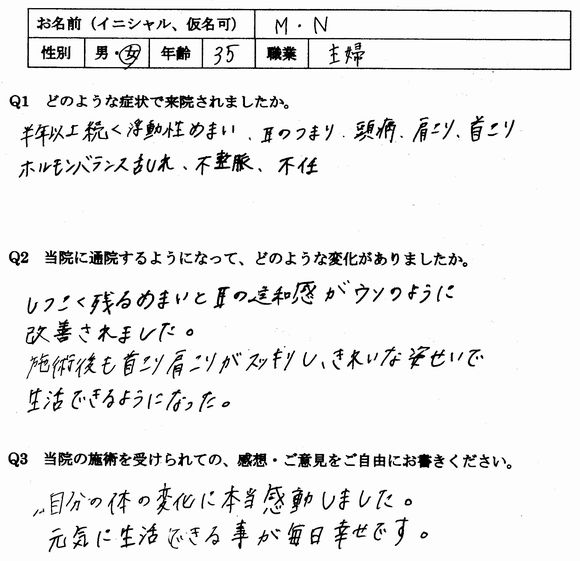 お名前（イニシャル、仮名可） M・N
性別 男・女 年齢 35 職業 主婦
Q1 どのような症状で来院されましたか。
半年以上続く浮動性めまい、耳のつまり、頭痛、肩こり、首こり
ホルモンバランス乱れ、不整脈、不妊
Q2 当院に通院するようになって、どのような変化がありましたか。
しつこく残るめまいと耳の違和感がウソのように
改善されました。
施術後も首こり肩こりがスッキリし、きれいな姿せいで
生活できるようになった。
Q3 当院の施術を受けられての、感想・ご意見をご自由にお書きください。
自分の体の変化に本当感動しました。
元気に生活できる事が毎日幸せです。